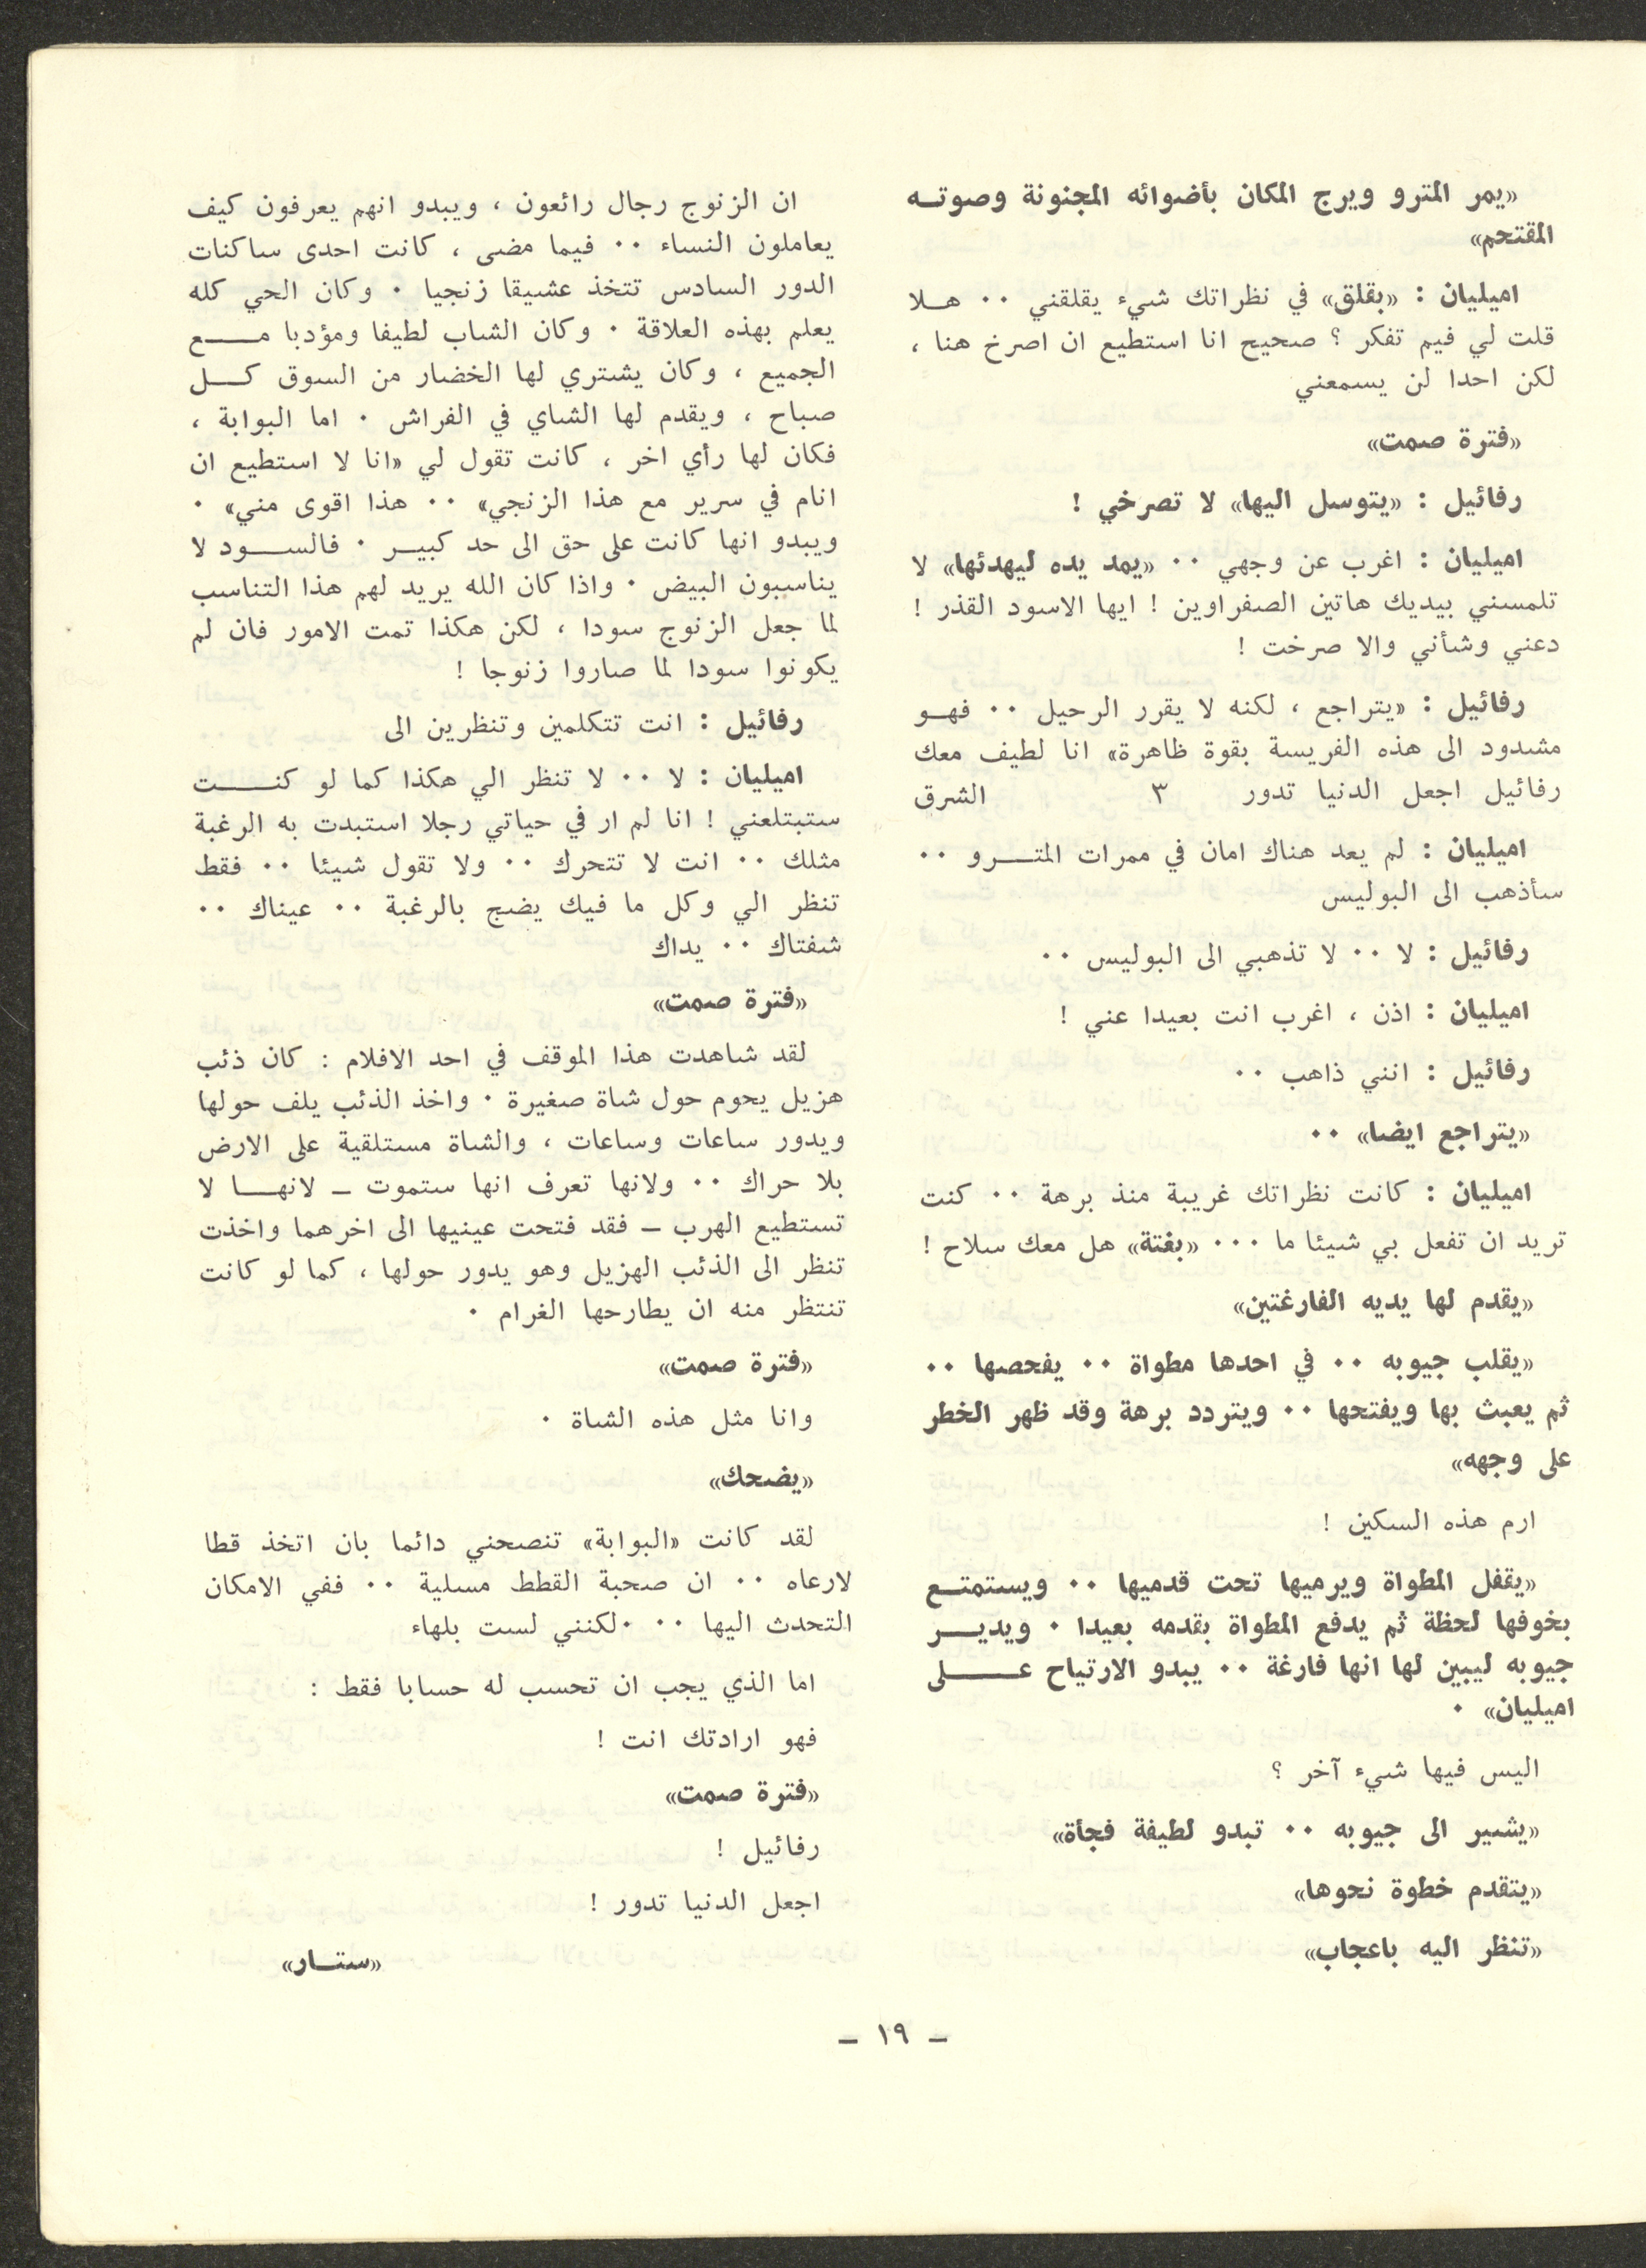 «يمر المترو ويرج المكان بأضوائه المجنونة وصوته
المقتحم»
اميليان : «بقلق» في نظراتك شيء يقلقني ٠٠ هلا
قلت لي فيم تفكر ؟ صحيح انا استطيع ان اصرخ هنا ،
لكن احدا لن يسمعني
«فترة صمت»
رفائيل : «يتوسل اليها» لا تصرخي !
اميليان : اغرب عن وجهي ٠٠ «يمد يده ليهدئها» لا
تلمسني بيديك هاتين الصفراوين ! ايها الاسود القذر !
دعني وشأني والا صرخت !
رفائيل : «يتراجع ، لكنه لا يقرر الرحيل ٠٠ فهو
مشدود الى هذه الفريسة بقوة ظاهرة» انا لطيف معك
رفائيل اجعل الدنيا تدور ٣ الشرق
اميليان : لم يعد هناك امان في ممرات المترو ٠٠
سأذهب الى البوليس
رفائيل : لا ٠٠ لا تذهبي الى البوليس ٠٠
اميليان : اذن ، اغرب انت بعيدا عني !
رفائيل : انني ذاهب ٠٠
«يتراجع ايضا» ٠٠
اميليان : كانت نظراتك غريبة منذ برهة ٠٠ كنت
تريد ان تفعل بي شيئا ما ٠٠٠ «بغتة» هل معك سلاح !
«يقدم لها يديه الفارغتين»
«يقلب جيوبه ٠٠ في احدها مطواة ٠٠ يفحصها ٠٠
ثم يعبث بها ويفتحها ٠٠ ويتردد برهة وقد ظهر الخطر
على وجهه»
ارم هذه السكين !
«يقفل المطواة ويرميها تحت قدميها ٠٠ ويستمتع
بخوفها لحظة ثم يدفع المطواة بقدمه بعيدا ٠ ويدير
جيوبه ليبين لها انها فارغة ٠٠ يبدو الارتياح على
اميليان» ٠
اليس فيها شيء آخر ؟
«يشير الى جيوبه ٠٠ تبدو لطيفة فجأة»
«يتقدم خطوة نحوها»
«تنظر اليه باعجاب»
ان الزنوج رجال رائعون ، ويبدو انهم يعرفون كيف
يعاملون النساء ٠٠ فيما مضى ، كانت احدى ساكنات
الدور السادس تتخذ عشيقا زنجيا ٠ وكان الحي كله
يعلم بهذه العلاقة ٠ وكان الشاب لطيفا ومؤدبا مع
الجميع ، وكان يشتري لها الخضار من السوق كل
صباح ، ويقدم لها الشاي في الفراش ٠ اما البوابة ،
فكان لها رأي اخر ، كانت تقول لي «انا لا استطيع ان
انام في سرير مع هذا الزنجي» ٠٠ هذا اقوى مني» ٠
ويبدو انها كانت على حق الى حد كبير ٠ فالسود لا
يناسبون البيض ٠ واذا كان الله يريد لهم هذا التناسب
لما جعل الزنوج سودا ، لكن هكذا تمت الامور فان لم
يكونوا سودا لما صاروا زنوجا !
رفائيل : انت تتكلمين وتنظرين الى
اميليان : لا ٠٠ لا تنظر الي هكذا كما لو كنت
ستبتلعني ! انا لم ار في حياتي رجلا استبدت به الرغبة
مثلك ٠٠ انت لا تتحرك ٠٠ ولا تقول شيئا ٠٠ فقط
تنظر الي وكل ما فيك يضج بالرغبة ٠٠ عيناك ٠٠
شفتاك ٠٠ يداك
«فترة صمت»
لقد شاهدت هذا الموقف في احد الافلام : كان ذئب
هزيل يحوم حول شاة صغيرة ٠ واخذ الذئب يلف حولها
ويدور ساعات وساعات ، والشاة مستلقية على الارض
بلا حراك ٠٠ ولانها تعرف انها ستموت – لانها لا
تستطيع الهرب – فقد فتحت عينيها الى اخرهما واخذت
تنظر الى الذئب الهزيل وهو يدور حولها ، كما لو كانت
تنتظر منه ان يطارحها الغرام ٠
«فترة صمت»
وانا مثل هذه الشاة ٠
«يضحك»
لقد كانت «البوابة» تنصحني دائما بان اتخذ قطا
لارعاه ٠٠ ان صحبة القطط مسلية ٠٠ ففي الامكان
التحدث اليها ٠٠ ٠لكنني لست بلهاء
اما الذي يجب ان تحسب له حسابا فقط :
فهو ارادتك انت !
«فترة صمت»
رفائيل !
اجعل الدنيا تدور !
«ستار»
– ١٩ –